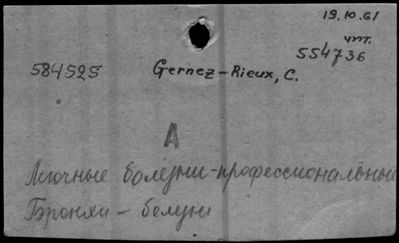 19.10.61
чт.
554736
584525 Gernez-Rieux, C.
А
Легочные болезни-профессиональные
Бронхи - болезни